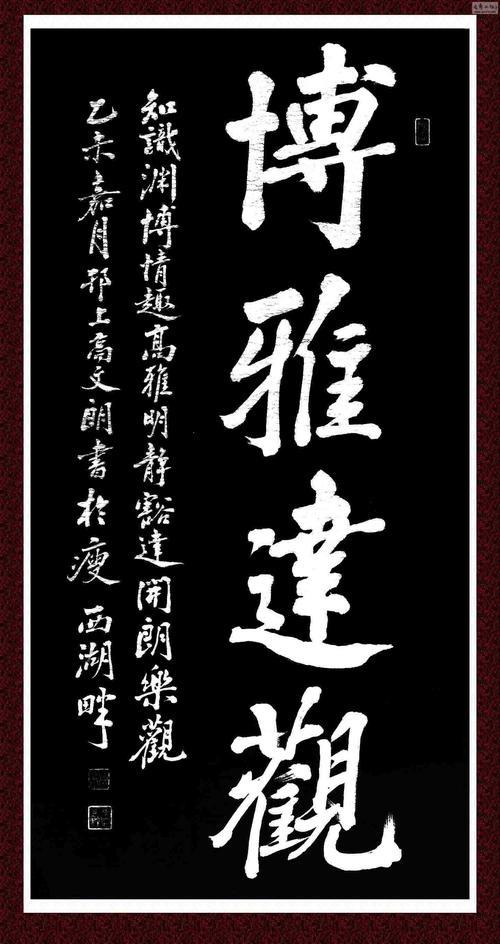 博雅達觀
知識渊博情趣高雅明靜豁達開朗樂觀
乙未嘉月邗上高文朗書於瘦西湖畔